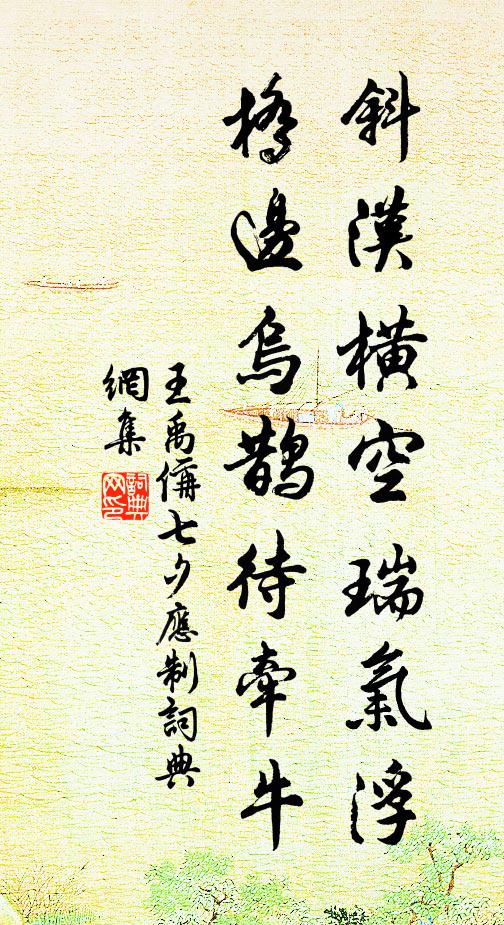 斜漢橫空瑞氣浮
橋邊烏鵲待牽牛
王禹偁七夕應制詞典
網集
詞典網印